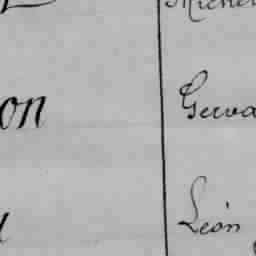 Michel
on Gerva
Léon